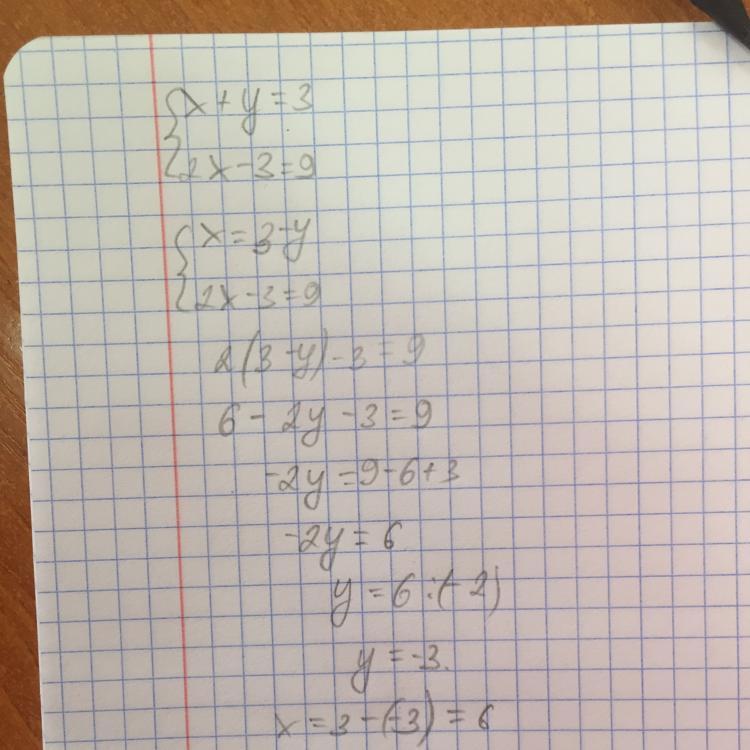 {x + y = 3
{2x - 3 = 9
{x = 3 - y
{2x - 3 = 9
2(3 - y) - 3 = 9
6 - 2y - 3 = 9
-2y = 9 - 6 + 3
-2y = 6
y = 6 : (-2)
y = -3.
x = 3 - (-3) = 6